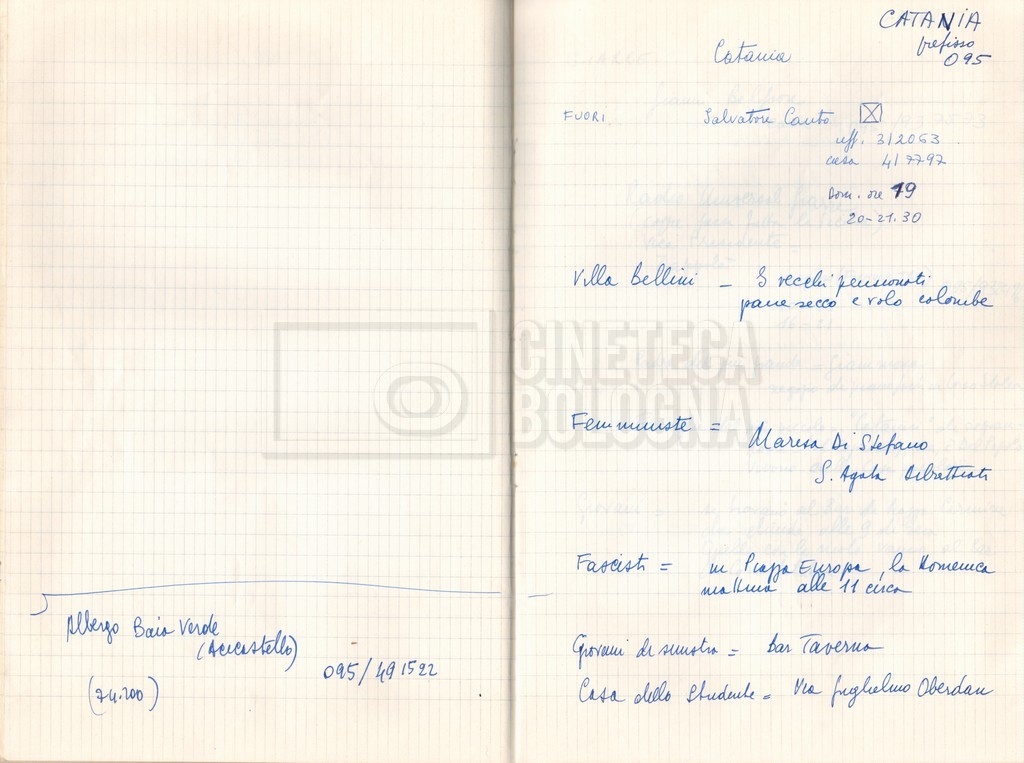 Albergo Baia Verde
(Acicastello)
095/491522
(74.200)
CATANIA
prefisso
095
Catania
FUORI Salvatore Cauto
uff. 312063
casa 417797
Dom. ore 19
20-21.30
Villa Bellini - I vecchi pensionati
pane secco e volo colombe
CINETECA
BOLOGNA
Femministe = Maresa Di Stefano
S. Agata
Fascisti = in Piazza Europa, la Domenica
mattina alle 11 circa
Giovani di sinistra = Bar Taverna
Casa dello Studente = Via Guglielmo Oberdan